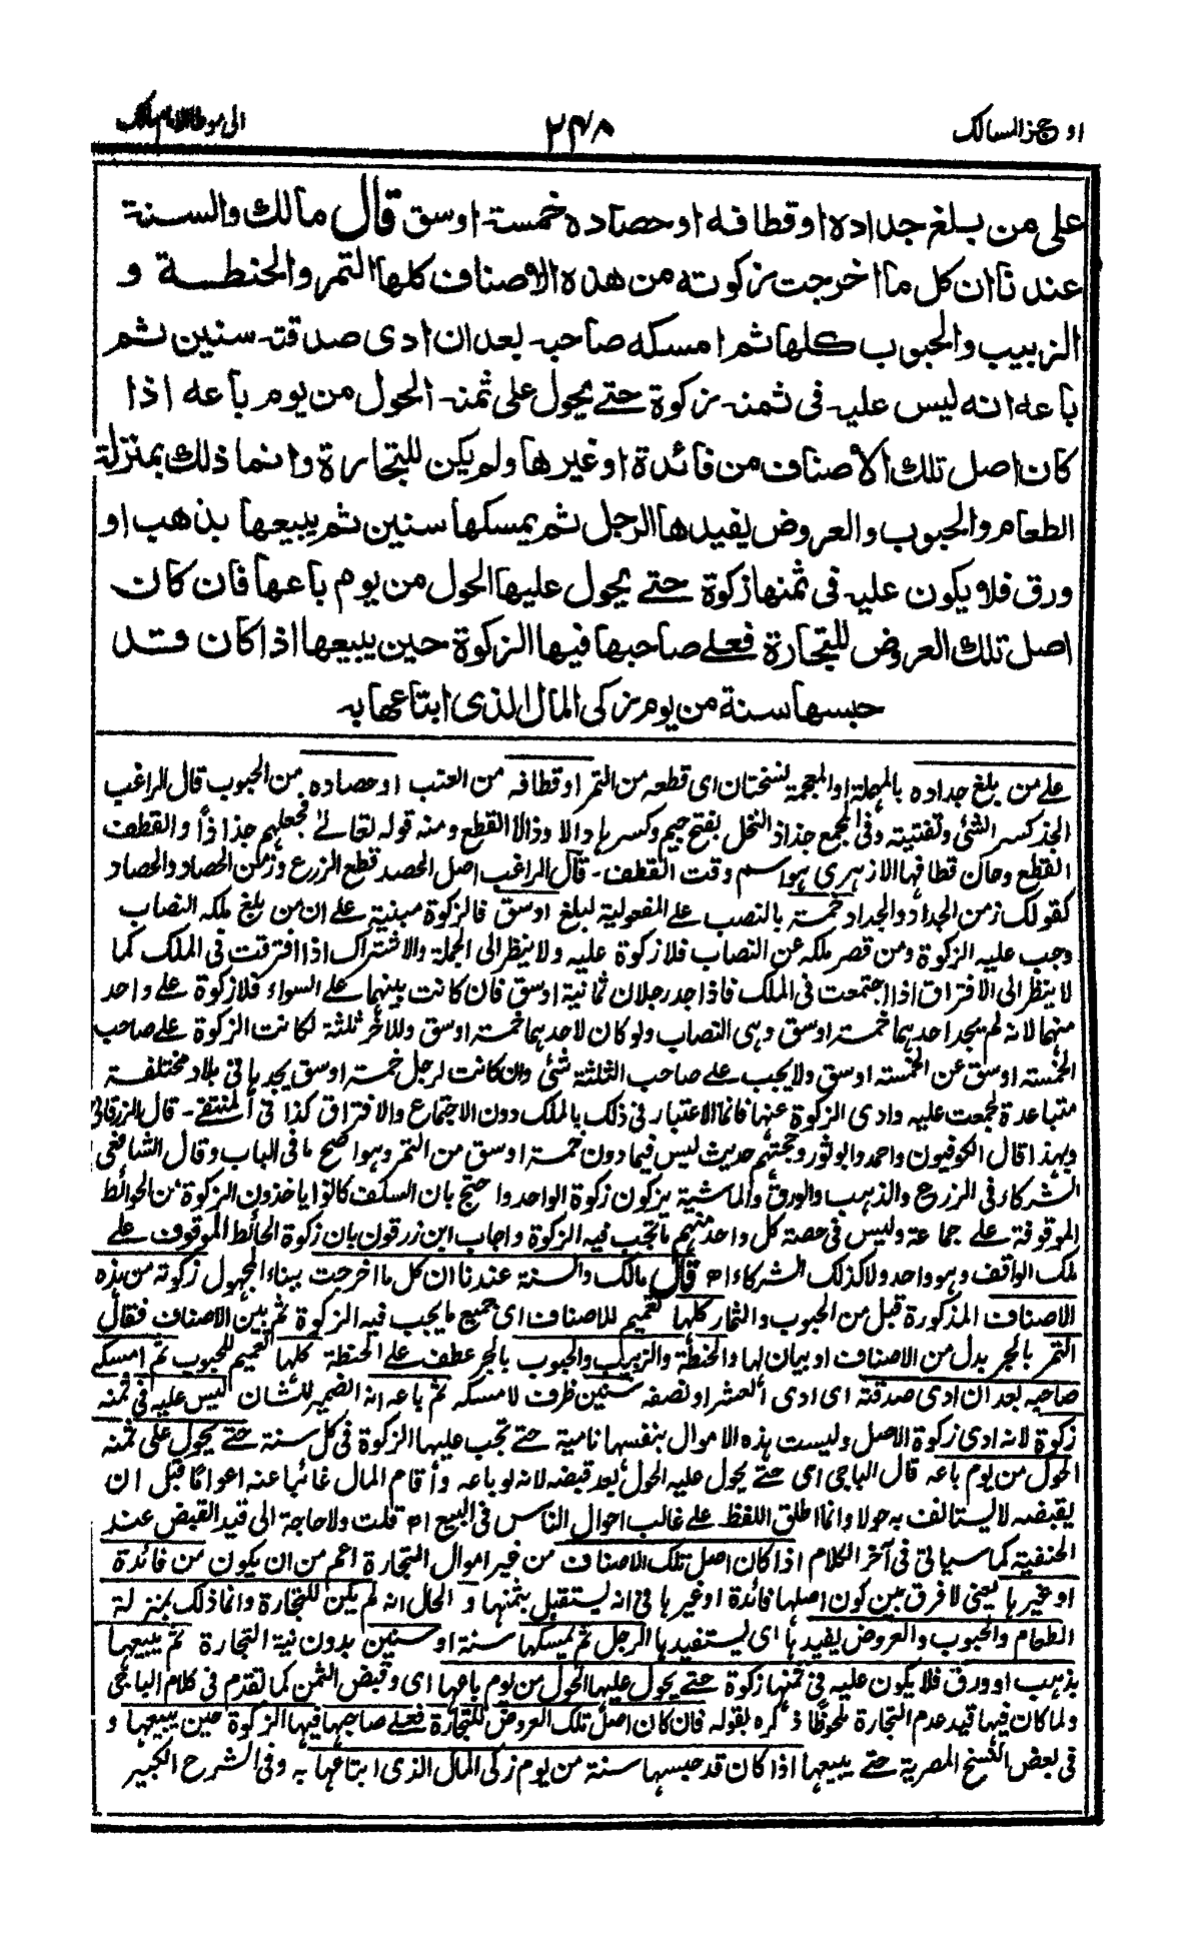 اوجز المسالك
٢٣٨
الى موطا الامام مالك
على من بلغ جداده او قطافه او حصاده خمسة اوسق قال مالك والسنة
عندنا ان كل ما اخرجت زكوته من هذه الاصناف كلها التمر والحنطة و
الزبيب والحبوب كلها ثم امسكه صاحبه بعد ان ادى صدقته سنين ثم
باعه انه ليس عليه فى ثمنه زكوة حتے يحول على ثمنه الحول من يوم باعه اذا
كان اصل تلك الاصناف من فائدة او غيرها ولم يكن للتجارة وانما ذلك بمنزلة
الطعام والحبوب والعروض يفيدها الرجل ثم يمسكها سنين ثم يبيعها بذهب او
ورق فلا يكون عليه فى ثمنها زكوة حتے يحول عليها الحول من يوم باعها فان كان
اصل تلك العروض للتجارة فعلے صاحبها فيها الزكوة حين يبيعها اذا كان قد
حبسها سنة من يوم زكى المال الذى ابتاعها به
علے من بلغ جداده بالمهملة او المعجمة نسختان اى قطعه من التمر او قطافه من العنب او حصاده من الحبوب قال الراغب
الجذ كسر الشئ وتفتيته وفى المجمع جذاذ النخل بفتح جيم وكسرها والا وذالا القطع ومنه قوله تعالے فجعلهم جذاذاً والقطف
القطع وحان قطافها الازهرى هو اسم وقت القطف ـ قال الراغب اصل الحصد قطع الزرع وزمن الحصاد والحصاد
كقولك زمن الجداد والجداد خمسة بالنصب علے المفعولية لبلغ اوسق فالزكوة مبنية علے ان من بلغ ملكه النصاب
وجب عليه الزكوة ومن قصر ملكه عن النصاب فلا زكوة عليه ولا ينظر الى الجملة والاشتراك اذا افترقت فى الملك كما
لا ينظر الى الافتراق اذا اجتمعت فى الملك فاذا جد رجلان ثمانية اوسق فان كانت بينهما علے السواء فلا زكوة علے واحد
منهما لانه لم يجد احدهما خمسة اوسق وهى النصاب ولو كان لاحدهما خمسة اوسق وللآخر ثلثة لكانت الزكوة علے صاحب
الخمسة اوسق عن الخمسة اوسق ولا يجب علے صاحب الثلثة شئ وان كانت لرجل خمسة اوسق يجدها فى بلاد مختلفة
متباعدة لجمعت عليه وادى الزكوة عنها فانما الاعتبار فى ذلك بالملك دون الاجتماع والافتراق كذا فى المنتقے ـ قال الزرقانى
وبهذا قال الكوفيون واحمد وابو ثور وحجتهم حديث ليس فيما دون خمسة اوسق من التمر وهو اصح ما فى الباب وقال الشافعى
الشركاء فى الزرع والذهب والورق والماشية يزكون زكوة الواحد واحتج بان السلف كانوا ياخذون الزكوة من الحوائط
الموقوفة علے جماعة وليس فى حصة كل واحد منهم ما تجب فيه الزكوة واجاب ابن زرقون بان زكوة الحائط الموقوف علے
ملك الواقف وهو واحد ولا كذلك الشركاء اه قال مالك والسنة عندنا ان كل ما اخرجت ببناء المجهول زكوته من هذه
الاصناف المذكورة قبل من الحبوب والثمار كلها تعميم للاصناف اى جميع ما يجب فيه الزكوة ثم بين الاصناف فقال
التمر بالجر بدل من الاصناف او بيان لها والحنطة والزبيب والحبوب بالجر عطف علے الحنطة كلها تعميم للحبوب ثم امسكه
صاحبه بعد ان ادى صدقته اى ادى العشر او نصفه سنين ظرف لامسكه ثم باعه انه الضمير للشان ليس عليه فى ثمنه
زكوة لانه ادى زكوة الاصل وليست هذه الاموال بنفسها نامية حتے تجب عليها الزكوة فى كل سنة حتے يحول على ثمنه
الحول من يوم باعه قال الباجى اى حتے يحول عليه الحول بعد قبضه لانه لو باعه وأقام المال غائبا عنه اعواما قبل ان
يقبضه لا يستالف به حولا وانما اطلق اللفظ علے غالب احوال الناس فى البيع اه قلت ولا حاجة الى قيد القبض عند
الحنفية كما سياتى فى آخر الكلام اذا كان اصل تلك الاصناف من غير اموال التجارة اعم من ان يكون من فائدة
او غيرها يعنى لا فرق بين كون اصلها فائدة او غيرها فى انه يستقبل بثمنها و الحال انه لم يكن للتجارة وانما ذلك بمنزلة
الطعام والحبوب والعروض يفيدها اى يستفيدها الرجل ثم يمسكها سنة او سنين بدون نية التجارة ثم يبيعها
بذهب او ورق فلا يكون عليه فى ثمنها زكوة حتے يحول عليها الحول من يوم باعها اى وقبض الثمن كما تقدم فى كلام الباجى
ولما كان فيها قيد عدم التجارة ملحوظا ذكره بقوله فان كان اصل تلك العروض للتجارة فعلے صاحبها فيها الزكوة حين يبيعها و
فى بعض النسخ المصرية حتے يبيعها اذا كان قد حبسها سنة من يوم زكى المال الذى ابتاعها به وفى الشرح الكبير